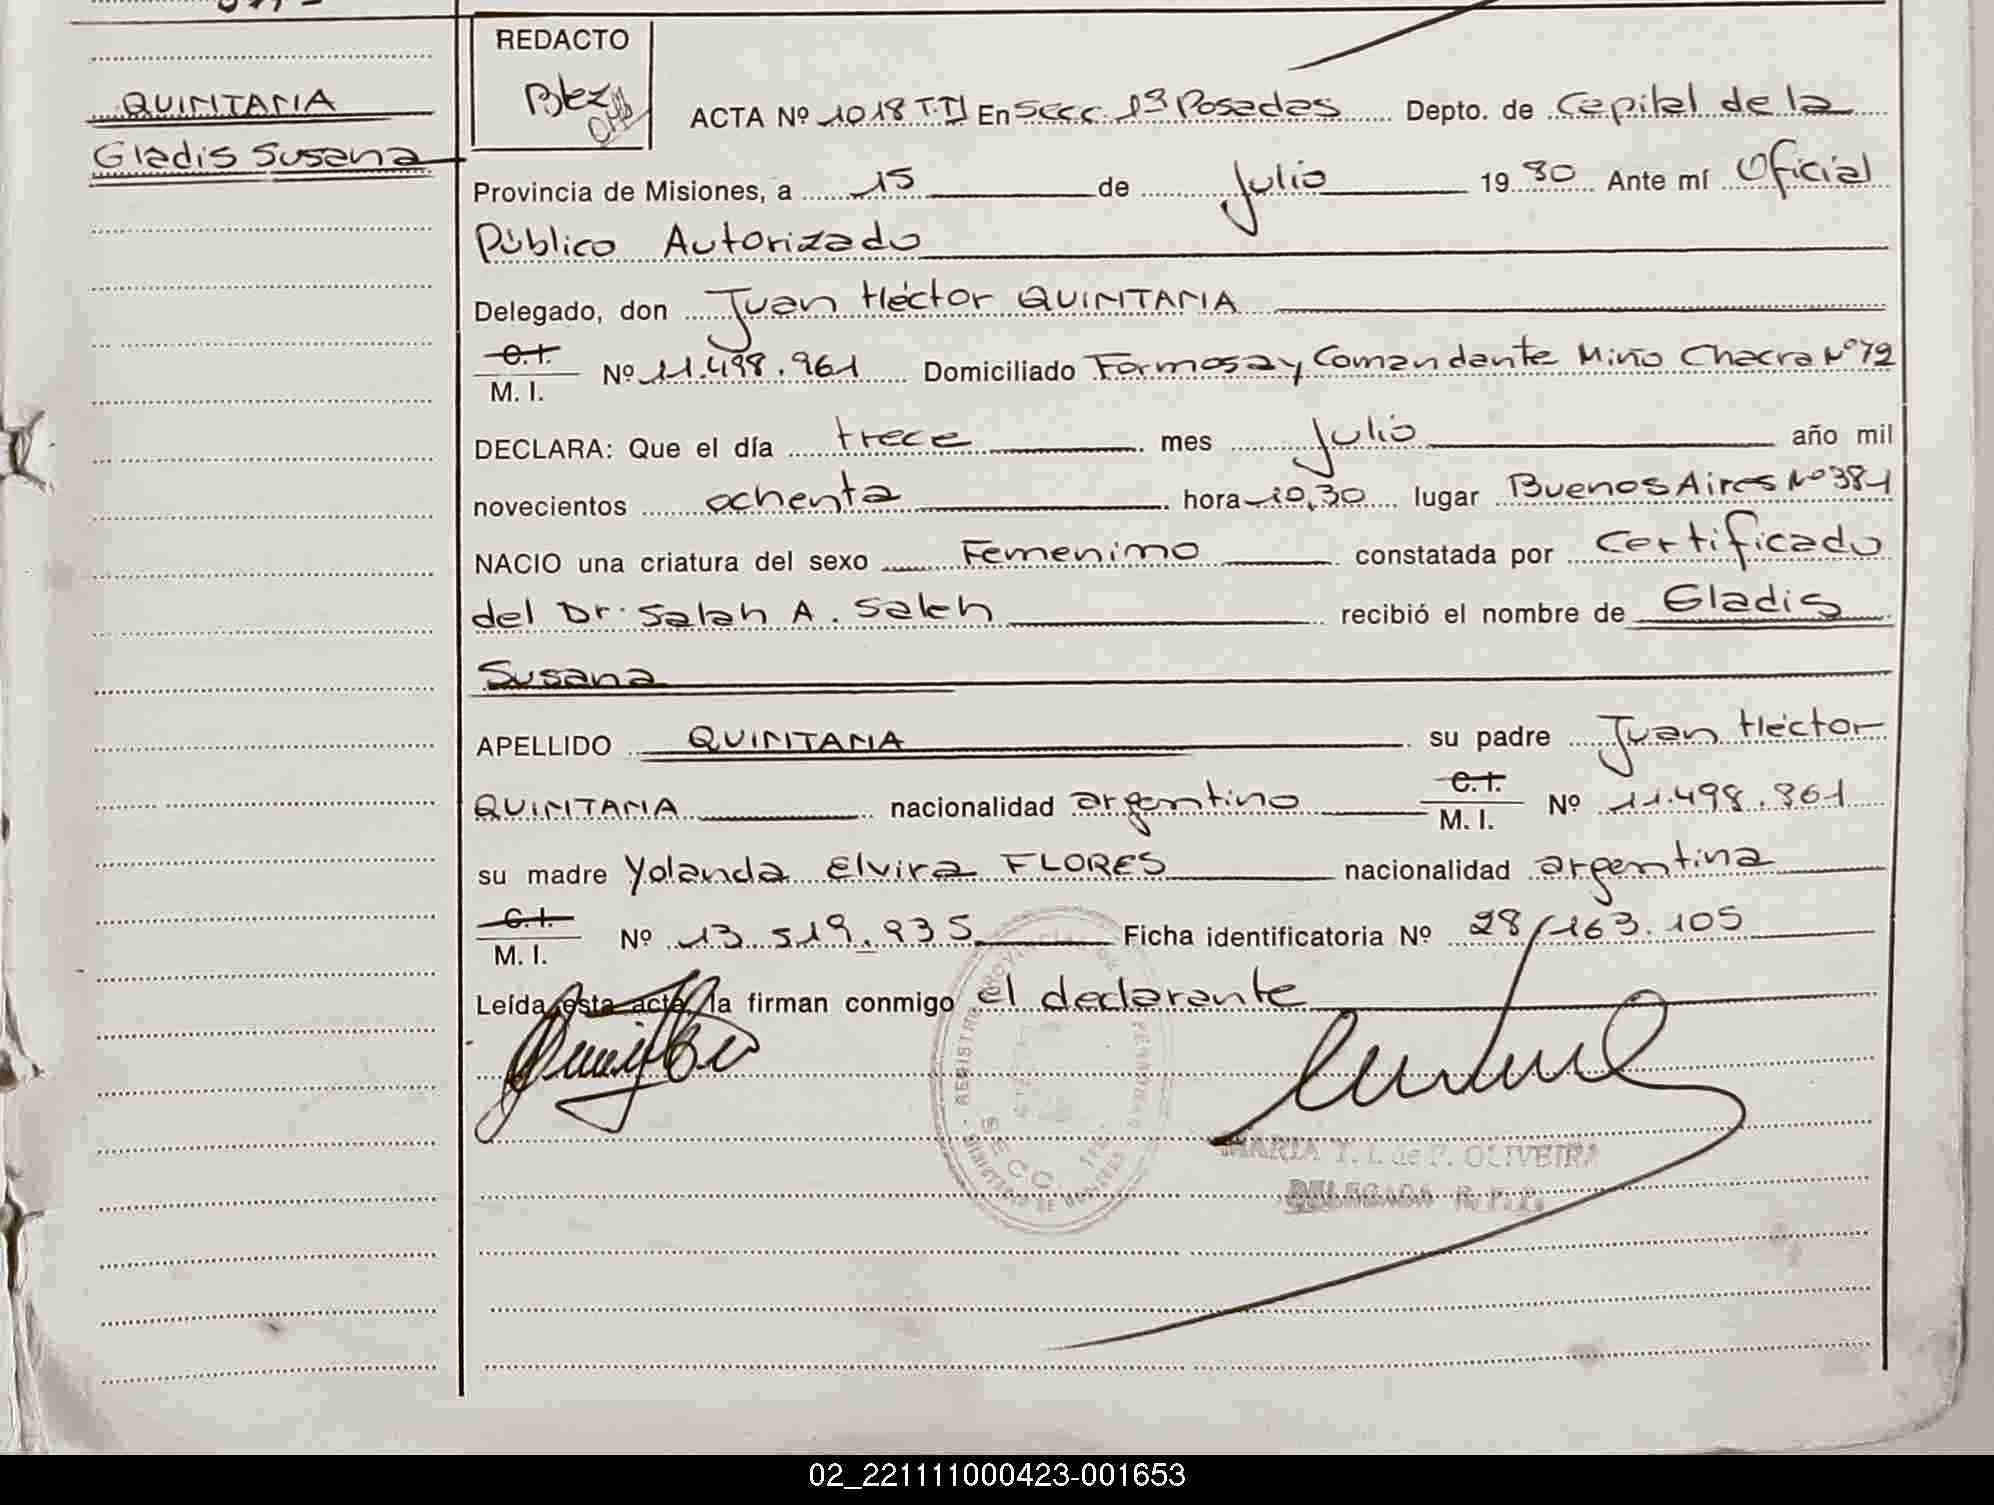 QUINTANA
Gladis Susana
REDACTO
ACTA Nº 1018 T.II En Secc. 1ª Posadas Depto. de Capital de la
Provincia de Misiones, a 15 de Julio 1980 Ante mí Oficial
Público Autorizado
Delegado, don Juan Héctor QUINTANA
C. I.
M. I. Nº 11.498.961 Domiciliado Formosa y Comandante Miño Chacra Nº 72
DECLARA: Que el día trece mes Julio año mil
novecientos ochenta hora 10,30 lugar Buenos Aires Nº 381
NACIO una criatura del sexo Femenino constatada por Certificado
del Dr. Salah A. Saleh recibió el nombre de Gladis
Susana
APELLIDO QUINTANA su padre Juan Héctor
QUINTANA nacionalidad argentino C. I.
M. I. Nº 11.498.961
su madre Yolanda Elvira FLORES nacionalidad argentina
C. I.
M. I. Nº 13.519.935 Ficha identificatoria Nº 28/163.105
Leída esta acta, la firman conmigo el declarante
MARIA T. I. de F. OLIVEIRA
DELEGADA R. P. P.
02_221111000423-001653